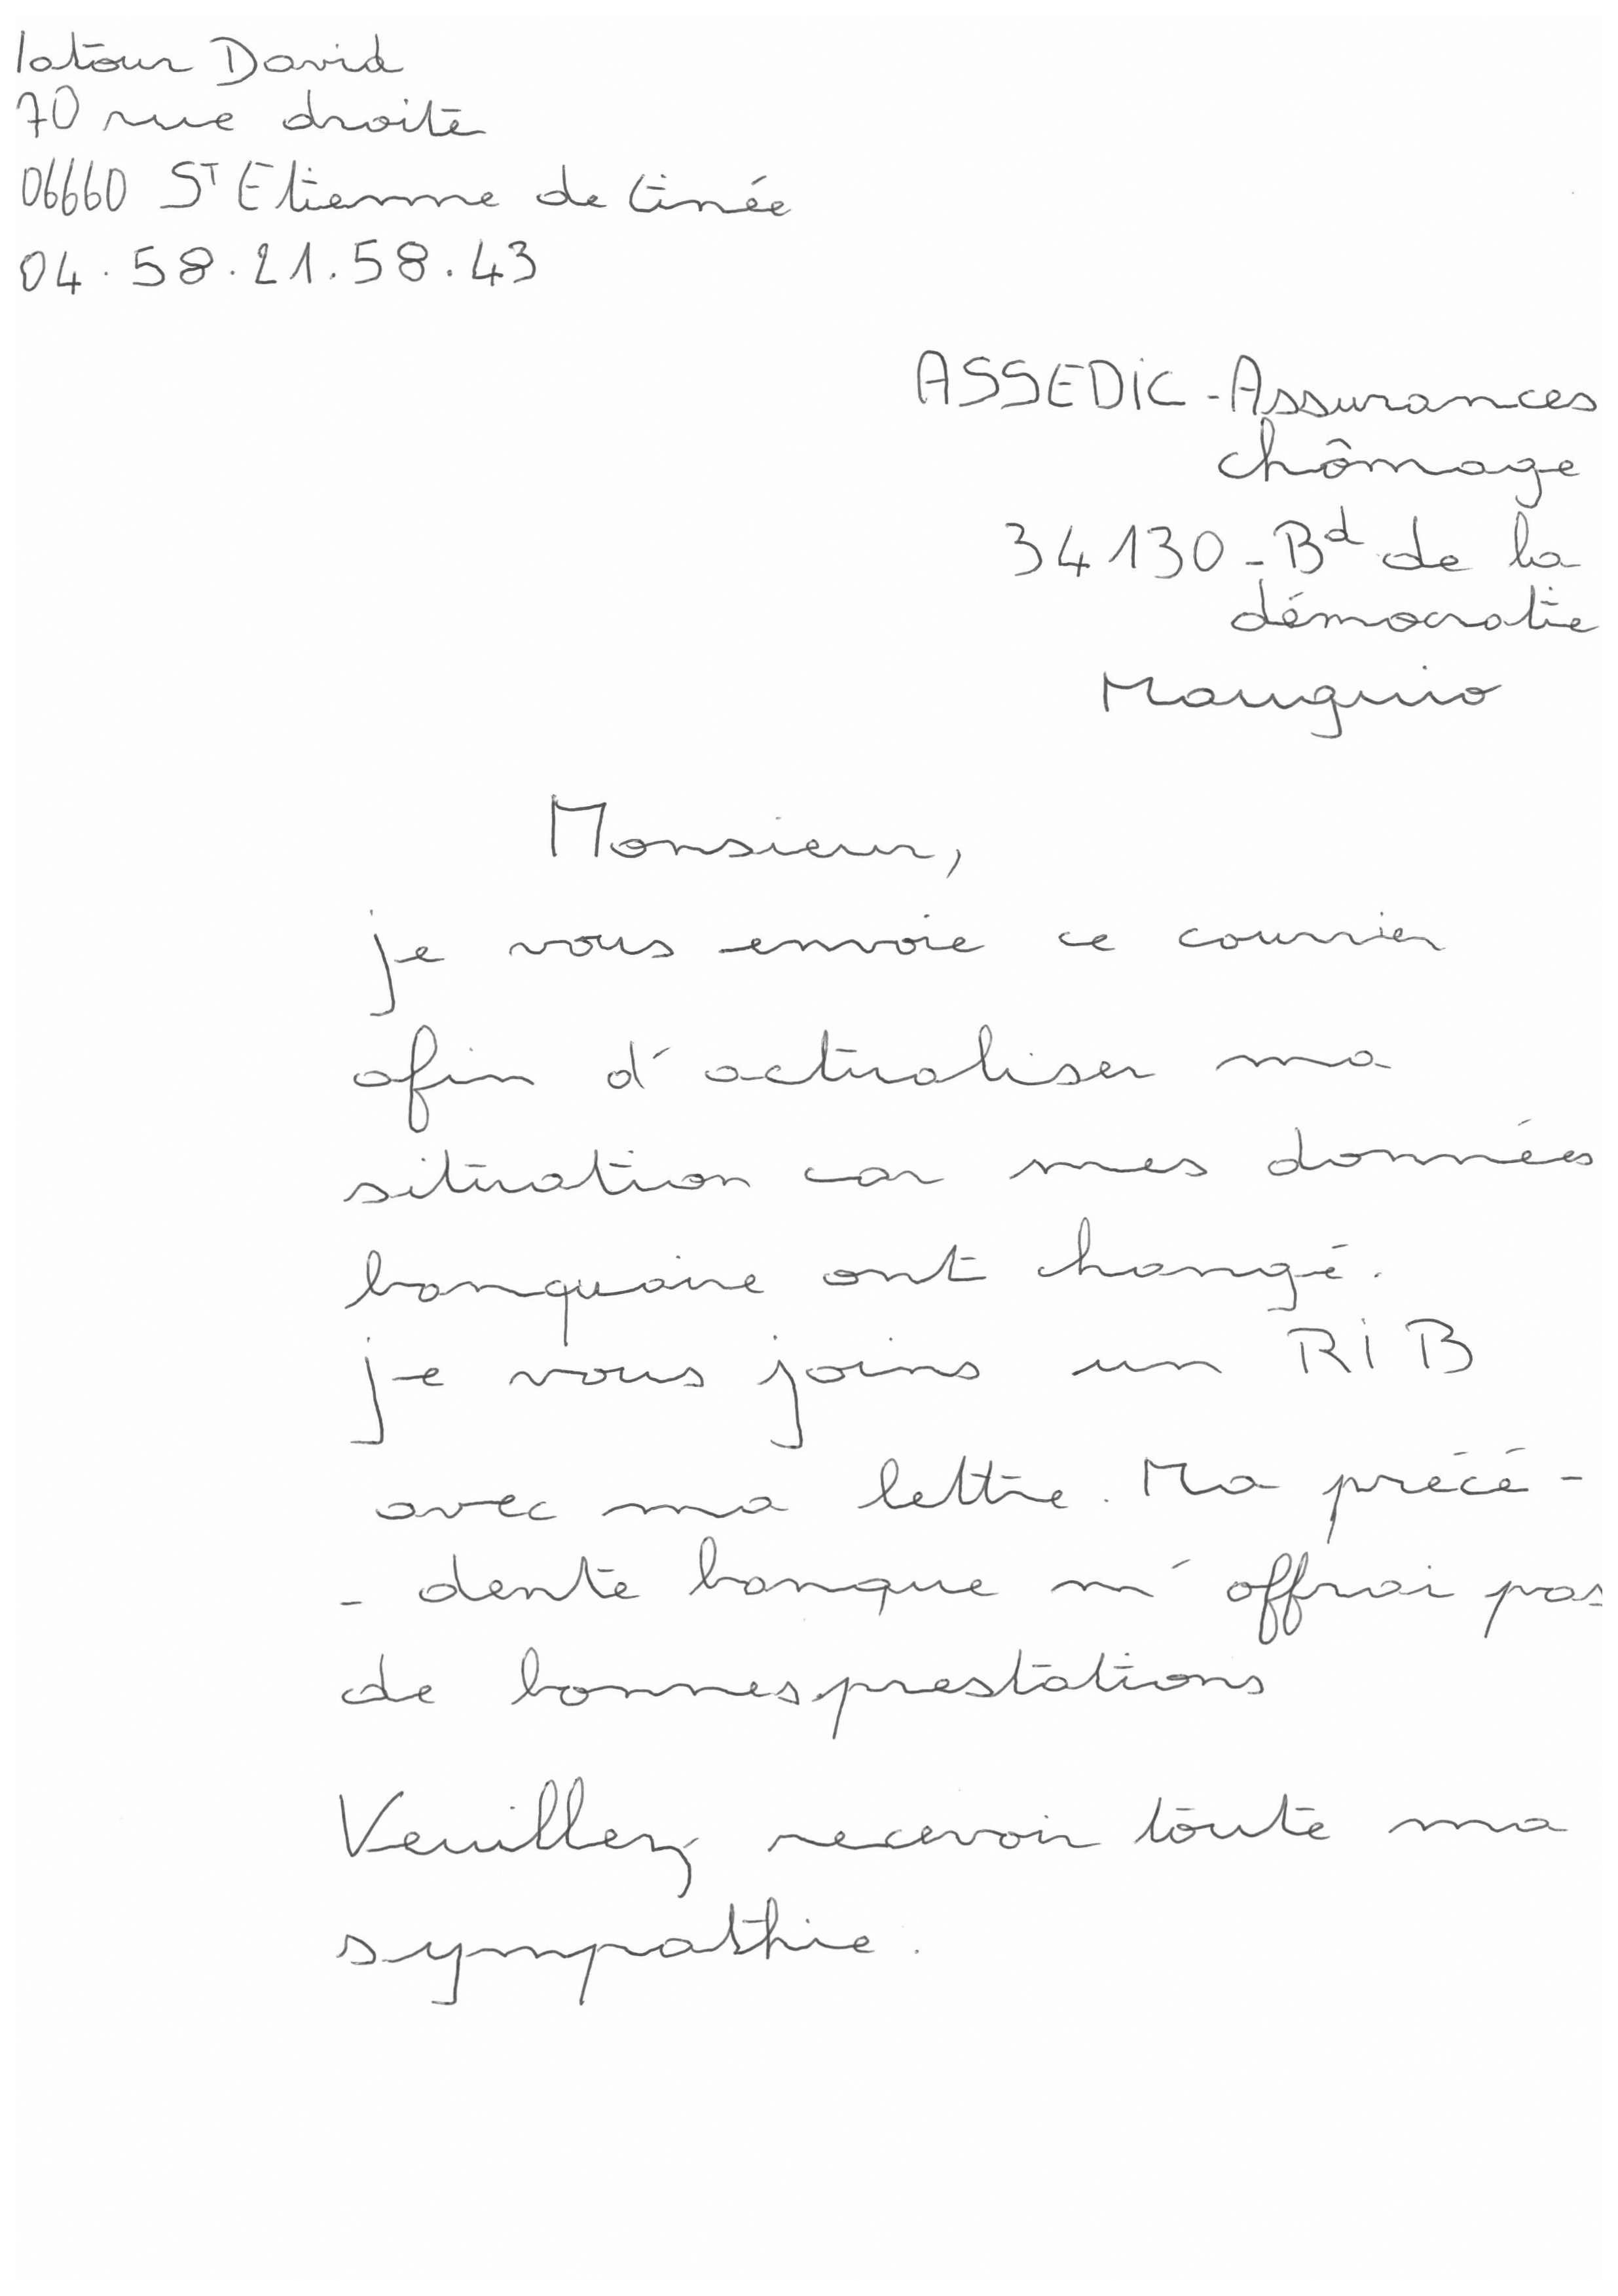 latour David
70 rue droite
06660 St Etienne de tinée
04.58.21.58.43
ASSEDIC - Assurances
chômage
34130 - Bd de la
démocratie
Mauguio
Monsieur,
je vous envoie ce courrier
afin d'actualiser ma
situation car mes données
banquaire ont changé.
je vous joins un RIB
avec ma lettre. Ma précé-
- dente banque m'offrai pas
de bonnes prestations
Veuillez recevoir toute ma
sympathie.